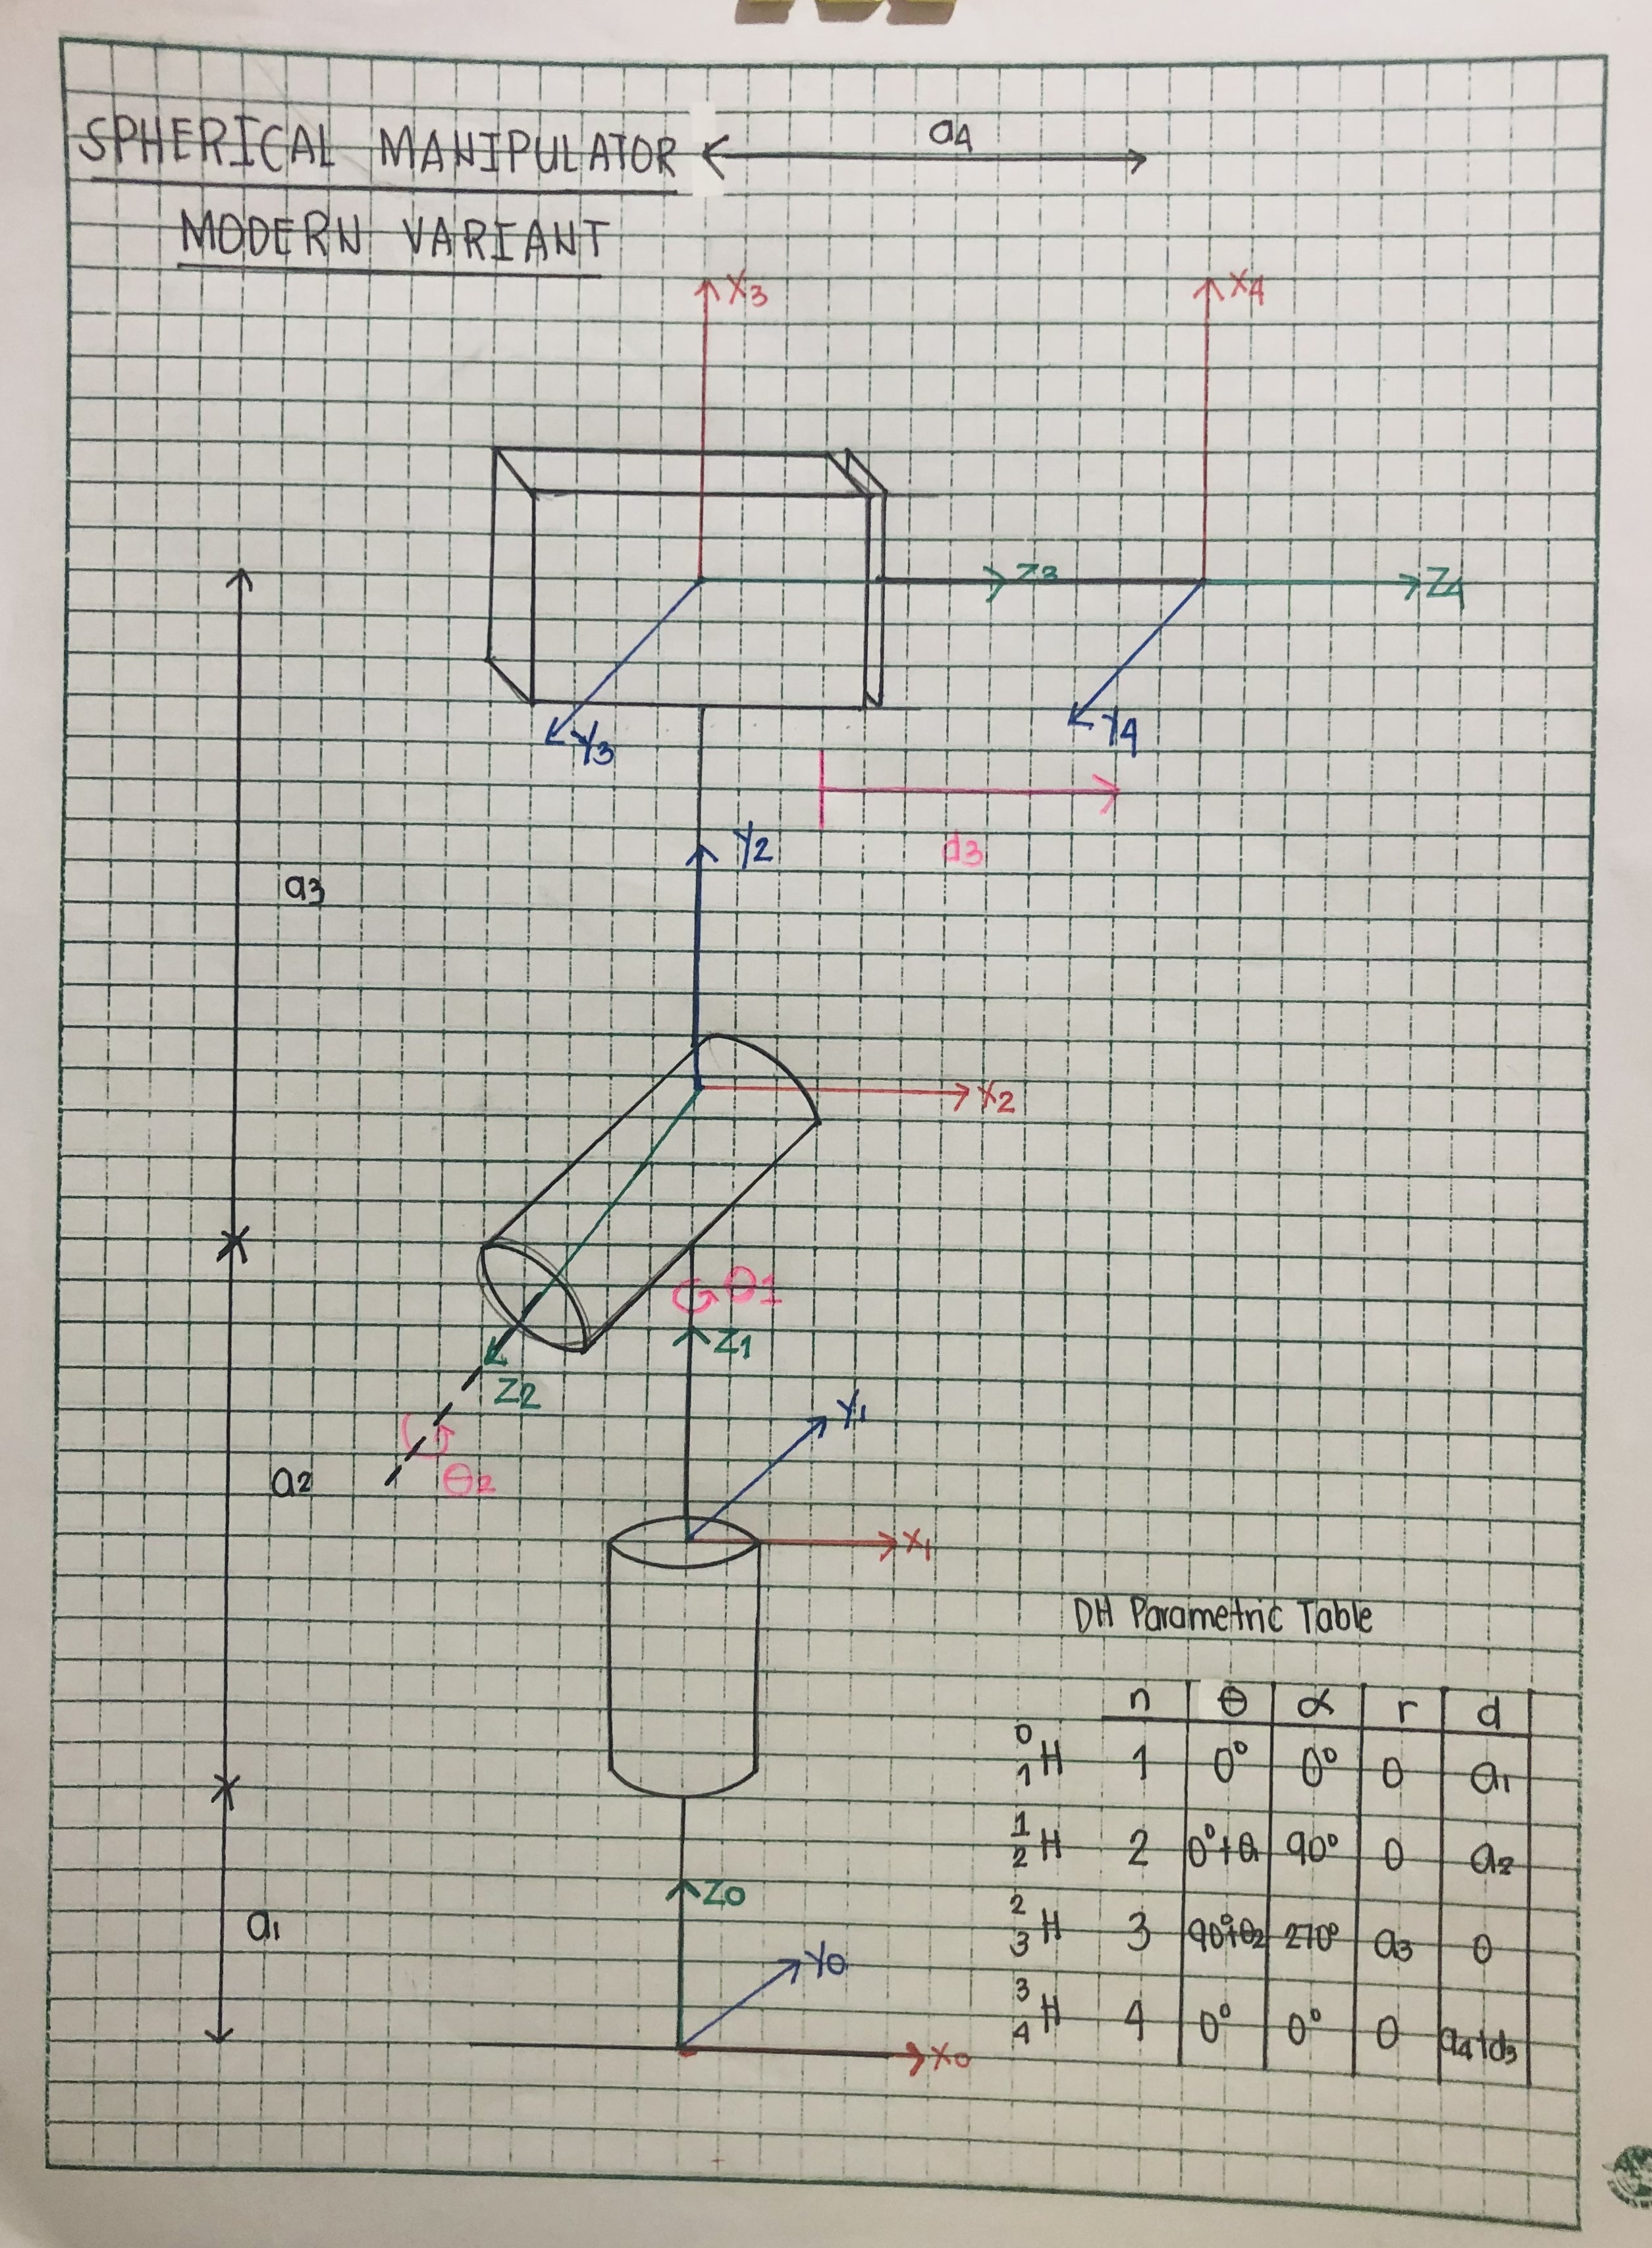 SPHERICAL MANIPULATOR
a4
MODERN VARIANT
X3
X4
Z3
Z4
Y3
Y4
d3
Y2
a3
X2
θ1
Z1
Z2
Y1
θ2
a2
X1
DH Parametric Table
n θ α r d
0 1 H 1 0° 0° 0 a1
1 2 H 2 0°+θ1 90° 0 a2
2 3 H 3 90°+θ2 270° a3 0
3 4 H 4 0° 0° 0 a4+d3
Z0
a1
Y0
X0